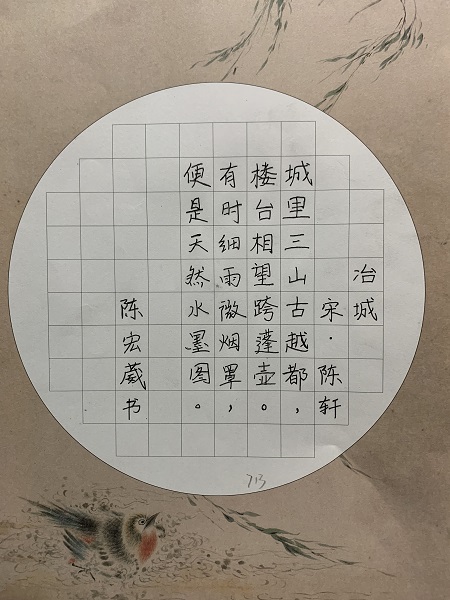 冶城
宋·陈轩
城里三山古越都，
楼台相望跨蓬壶。
有时细雨微烟罩，
便是天然水墨图。
陈宏葳书
713